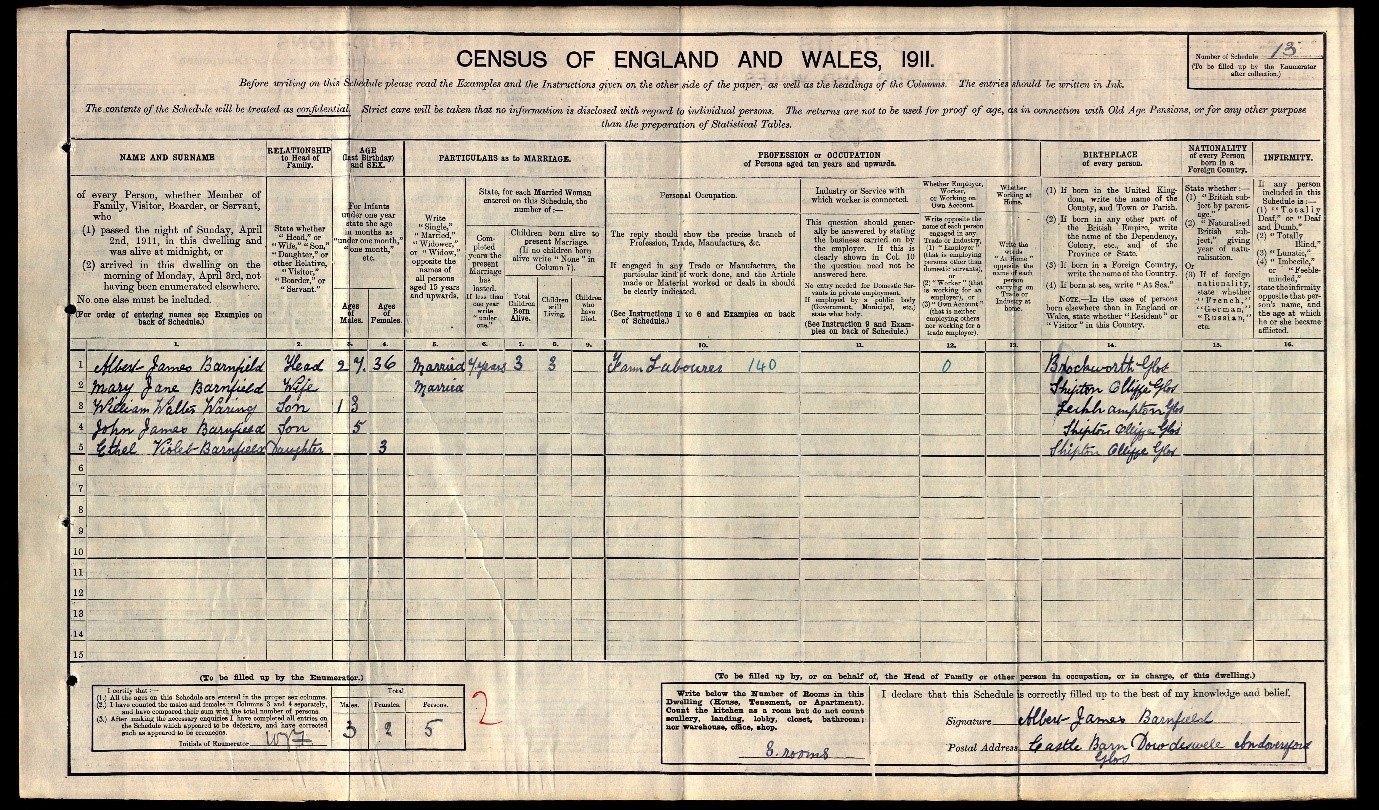 CENSUS OF ENGLAND AND WALES, 1911.
Number of Schedule 13
(To be filled up by the Enumerator
after collection.)
Before writing on this Schedule please read the Examples and the Instructions given on the other side of the paper, as well as the headings of the Columns. The entries should be written in Ink.
The contents of the Schedule will be treated as confidential. Strict care will be taken that no information is disclosed with regard to individual persons. The returns are not to be used for proof of age, as in connection with Old Age Pensions, or for any other purpose
than the preparation of Statistical Tables.
NAME AND SURNAME
of every Person, whether Member of
Family, Visitor, Boarder, or Servant,
who
(1) passed the night of Sunday, April
2nd, 1911, in this dwelling and
was alive at midnight, or
(2) arrived in this dwelling on the
morning of Monday, April 3rd, not
having been enumerated elsewhere.
No one else must be included.
(For order of entering names see Examples on
back of Schedule.)
RELATIONSHIP
to Head of
Family.
State whether
"Head," or
"Wife," "Son,"
"Daughter," or
other Relative,
"Visitor,"
"Boarder," or
"Servant."
AGE
(last Birthday)
and SEX.
For Infants
under one year
state the age
in months as
"under one month,"
"one month,"
etc.
Ages
of
Males.
Ages
of
Females.
PARTICULARS as to MARRIAGE.
Write
"Single,"
"Married,"
"Widower,"
or "Widow,"
opposite the
names of
all persons
aged 15 years
and upwards.
State, for each Married Woman
entered on this Schedule, the
number of:—
Completed
years the
present
Marriage
has
lasted.
If less than
one year
write
"under
one."
Children born alive to
present Marriage.
(If no children born
alive write "None" in
Column 7).
Total
Children
Born
Alive.
Children
still
Living.
Children
who
have
Died.
PROFESSION or OCCUPATION
of Persons aged ten years and upwards.
Personal Occupation.
The reply should show the precise branch of
Profession, Trade, Manufacture, &c.
If engaged in any Trade or Manufacture, the
particular kind of work done, and the Article
made or Material worked or dealt in should
be clearly indicated.
(See Instructions 1 to 6 and Examples on back
of Schedule.)
Industry or Service with
which worker is connected.
This question should gener-
ally be answered by stating
the business carried on by
the employer. If this is
clearly shown in Col. 10
the question need not be
answered here.
No entry needed for Domestic Ser-
vants in private employment.
If employed by a public body
(Government, Municipal, etc.)
state what body.
(See Instruction 9 and Exam-
ples on back of Schedule.)
Whether Employer,
Worker,
or Working on
Own Account.
Write opposite
the name of each person
engaged in any
Trade or Industry,
(1) "Employer"
(that is employing
persons other than
domestic servants),
or
(2) "Worker" (that
is working for an
employer), or
(3) "Own Account"
(that is neither
employing others
nor working for a
trade employer).
Whether
Working at
Home.
Write the
words
"At Home"
opposite the
name of each
person
carrying on
Trade or
Industry at
home.
BIRTHPLACE
of every person.
(1) If born in the United King-
dom, write the name of the
County, and Town or Parish.
(2) If born in any other part of
the British Empire, write
the name of the Dependency,
Colony, etc., and of the
Province or State.
(3) If born in a Foreign Country,
write the name of the Country.
(4) If born at sea, write "At Sea."
NOTE.—In the case of persons
born elsewhere than in England or
Wales, state whether "Resident" or
"Visitor" in this Country.
NATIONALITY
of every Person
born in a
Foreign Country.
State whether:—
(1) "British sub-
ject by parent-
age."
(2) "Naturalised
British sub-
ject," giving
year of natu-
ralisation.
Or
(3) If of foreign
nationality,
state whether
"French,"
"German,"
"Russian,"
etc.
INFIRMITY.
If any person
included in this
Schedule is:—
(1) "Totally
Deaf," or "Deaf
and Dumb,"
(2) "Totally
Blind,"
(3) "Lunatic,"
(4) "Imbecile,"
or "Feeble-
minded,"
state the infirmity
opposite that per-
son's name, and
the age at which
he or she became
afflicted.
1. 2. 3. 4. 5. 6. 7. 8. 9. 10. 11. 12. 13. 14. 15. 16.
1 Albert James Barnfield Head 27 36 Married 7 years 3 3 Farm Labourer 140 0 Brockworth Glos
2 Mary Jane Barnfield Wife Married Shipton Olliffe Glos
3 William Walter Waring Son 13 Leckhampton Glos
4 John James Barnfield Son 5 Shipton Olliffe Glos
5 Ethel Violet Barnfield Daughter 3 Shipton Olliffe Glos
6
7
8
9
10
11
12
13
14
15
(To be filled up by the Enumerator.)
I certify that:—
(1.) All the ages on this Schedule are entered in the proper sex columns.
(2.) I have counted the males and females in Columns 3 and 4 separately,
and have compared their sum with the total number of persons.
(3.) After making the necessary enquiries I have completed all entries on
the Schedule which appeared to be defective, and have corrected
such as appeared to be erroneous.
Initials of Enumerator
Total.
Males. Females. Persons.
3 2 5
2
(To be filled up by, or on behalf of, the Head of Family or other person in occupation, or in charge, of this dwelling.)
Write below the Number of Rooms in this
Dwelling (House, Tenement, or Apartment).
Count the kitchen as a room but do not count
scullery, landing, lobby, closet, bathroom;
nor warehouse, office, shop.
8. rooms
I declare that this Schedule is correctly filled up to the best of my knowledge and belief.
Signature Albert James Barnfield
Postal Address Castle Barn Dowdeswell Andoversford
Glos